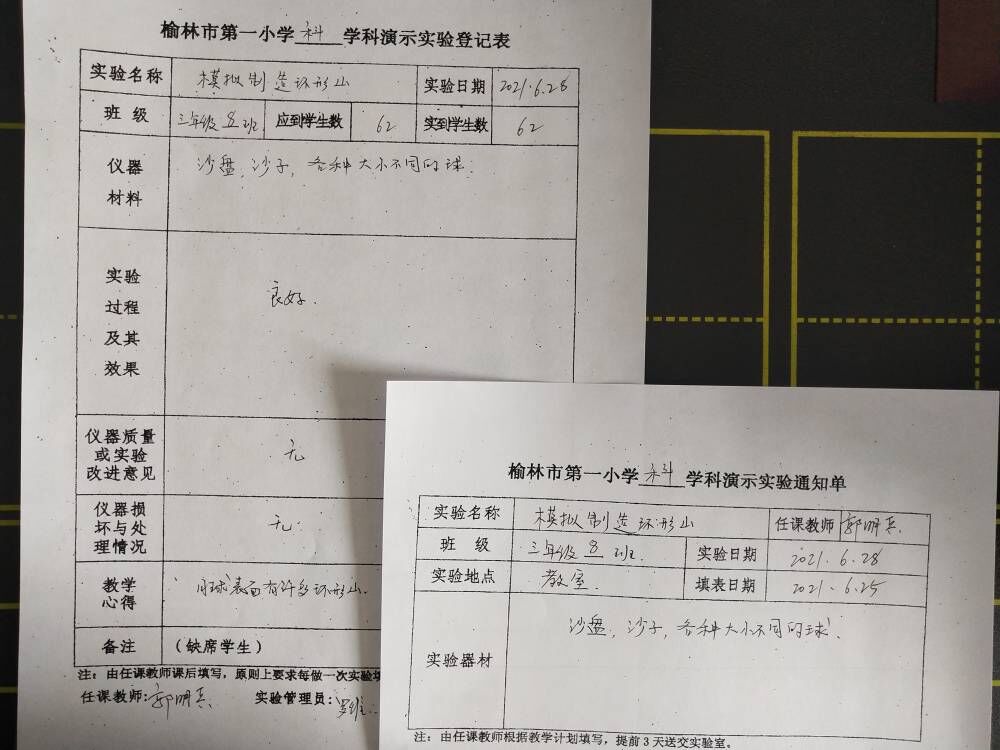 榆林市第一小学科学科演示实验登记表
实验名称 模拟制造环形山 实验日期 2021.6.28
班 级 三年级8班 应到学生数 62 实到学生数 62
仪器
材料
沙盘,沙子,各种大小不同的球.
实验
过程
及其
效果
良好.
仪器质量
或实验
改进意见
无
仪器损
坏与处
理情况
无
教学
心得
月球表面有许多环形山.
备注 (缺席学生)
注:由任课教师课后填写,原则上要求每做一次实验填
任课教师:郭明 实验管理员:罗
榆林市第一小学科学科演示实验通知单
实验名称 模拟制造环形山 任课教师 郭明
班 级 三年级8班. 实验日期 2021.6.28
实验地点 教室. 填表日期 2021.6.25
实验器材 沙盘,沙子,各种大小不同的球.
注:由任课教师根据教学计划填写,提前3天送交实验室。